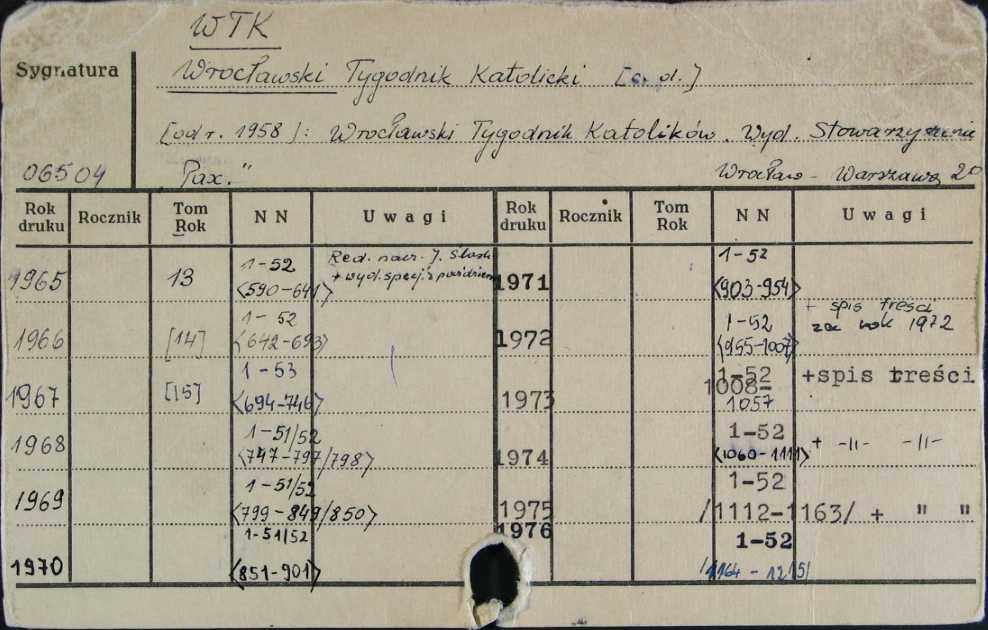 WTK
Sygnatura
Wrocławski Tygodnik Katolicki [c. d.]
[od r. 1958]: Wrocławski Tygodnik Katolików. Wyd. Stowarzyszenie
06504 Pax." Wrocław - Warszawa 20
Rok druku Rocznik Tom Rok NN Uwagi Rok druku Rocznik Tom Rok NN Uwagi
1965 13 1-52 <590-641> Red. nacz. J. + wyd. specj. z 1971 1-52 <903-954>
1966 [14] 1-52 <642-693> 1972 1-52 <955-1007> + spis treści za rok 1972
1967 [15] 1-53 <694-746> 1973 1-52 1008-1057 +spis treści
1968 1-51/52 <747-797/798> 1974 1-52 <1060-1111> + -||- -||-
1969 1-51/52 <799-849/850> 1975 1-52 /1112-1163/ + " "
1970 1-51/52 <851-901> 1976 1-52 /1164-1215/